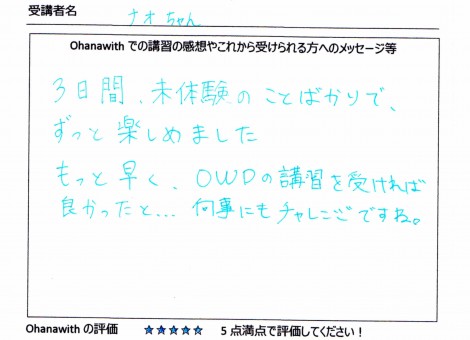 受講者名 ナオちゃん
Ohanawith での講習の感想やこれから受けられる方へのメッセージ等
3日間、未体験のことばかりで、
ずっと楽しめました
もっと早く、OWDの講習を受ければ
良かったと... 何事にもチャレンジですね。
Ohanawith の評価 ★★★★★ 5点満点で評価してください！